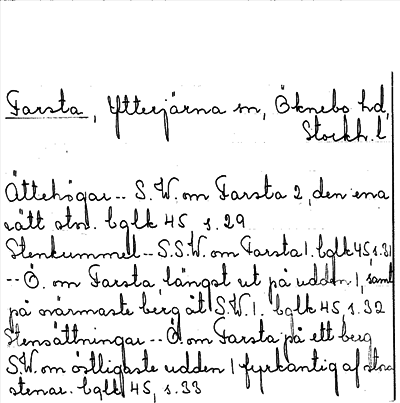 Farsta, Ytterjärna sn, Öknebo hd,
Stockh. l
Ättehögar -- S.W. om Farsta 2, den ena
rätt stor. bglk 45 s. 29
Stenkummel -- S.S.W. om Farsta 1. bglk 45, s. 31
-- Ö. om Farsta, längst ut på udden 1, samt
på närmaste berg åt S.W. 1. bglk 45, s. 32
Stensättningar -- Ö om Farsta på ett berg
S.W. om östligaste udden 1 fyrkantig af stora
stenar. bglk 45, s. 33